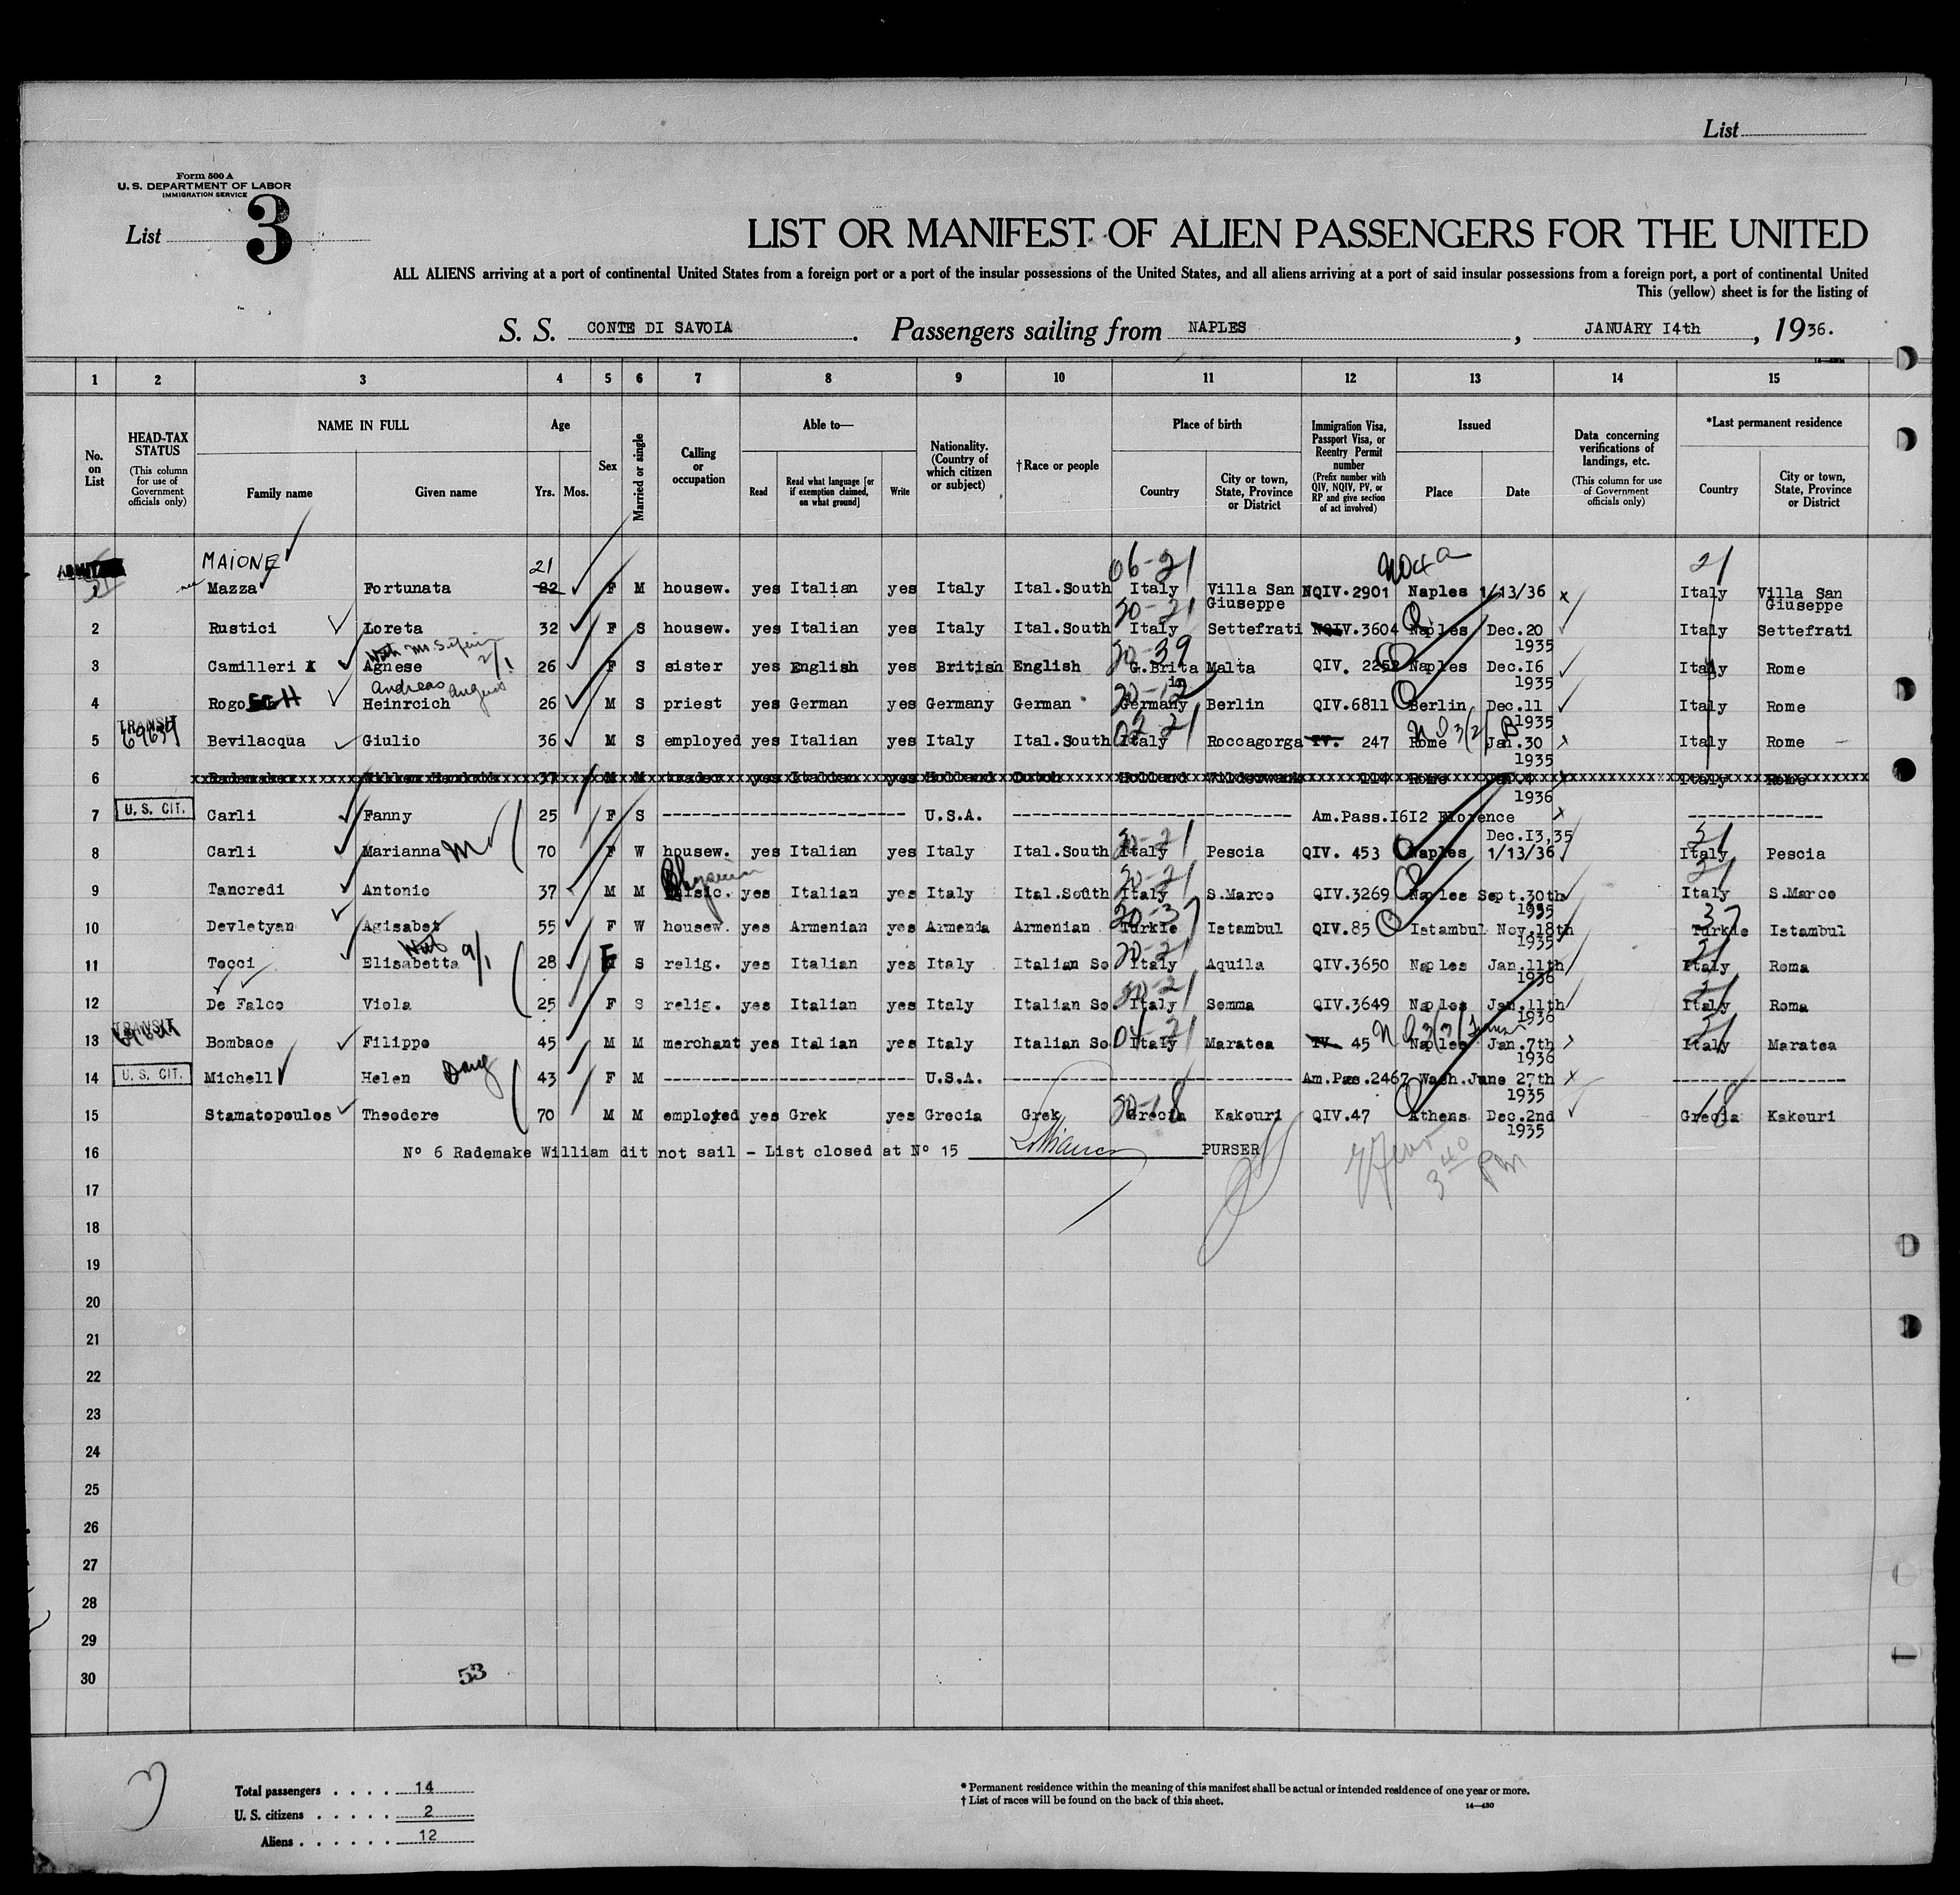 List
Form 500 A
U. S. DEPARTMENT OF LABOR
IMMIGRATION SERVICE
List 3
LIST OR MANIFEST OF ALIEN PASSENGERS FOR THE UNITED
ALL ALIENS arriving at a port of continental United States from a foreign port or a port of the insular possessions of the United States, and all aliens arriving at a port of said insular possessions from a foreign port, a port of continental United
This (yellow) sheet is for the listing of
S. S. CONTE DI SAVOIA. Passengers sailing from NAPLES, JANUARY I4th, 1936.
14—430
1 2 3 4 5 6 7 8 9 10 11 12 13 14 15
No. on List
HEAD-TAX STATUS (This column for use of Government officials only)
NAME IN FULL Family name Given name
Age Yrs. Mos.
Sex
Married or single
Calling or occupation
Able to— Read Read what language [or if exemption claimed, on what ground] Write
Nationality. (Country of which citizen or subject)
†Race or people
Place of birth Country City or town, State, Province or District
Immigration Visa, Passport Visa, or Reentry Permit number (Prefix number with QIV, NQIV, PV, or RP and give section of act involved)
Issued Place Date
Data concerning verifications of landings, etc. (This column for use of Government officials only)
*Last permanent residence Country City or town, State, Province or District
MAIONE 21 06-21 21
Mazza Fortunata 22 F M housew. yes Italian yes Italy Ital.South Italy Villa San Giuseppe NQIV.2901 Naples 1/13/36 x Italy Villa San Giuseppe
30-21
2 Rustici Loreta 32 F S housew. yes Italian yes Italy Ital.South Italy Settefrati NQIV.3604 Naples Dec.20 1935 Italy Settefrati
30-39
3 Camilleri Agnese 2/1 26 F S sister yes English yes British English G.Brita in Malta QIV. 2252 Naples Dec.I6 1935 Italy Rome
Andreas
4 Rogo Heinrcich 26 M S priest yes German yes Germany German Germany Berlin QIV.6811 Berlin Dec.11 1935 Italy Rome
TRANSIT
5 Bevilacqua Giulio 36 M S employed yes Italian yes Italy Ital.South Italy Roccagorga TV. 247 Rome Jan.30 1935 x Italy Rome
6 Rademaker 37 M M trader yes Italian yes Holland Dutch Holland Wilderwank 114 Rome 1936 Italy Rome
7 U. S. CIT. Carli Fanny 25 F S U.S.A. Am.Pass.I6I2 Florence Dec.I3,35 x
8 Carli Marianna M 70 F W housew. yes Italian yes Italy Ital.South Italy Pescia QIV. 453 Naples 1/13/36 Italy Pescia
Physician
9 Tancredi Antonio 37 M M yes Italian yes Italy Ital.South Italy S.Marco QIV.3269 Naples Sept.30th 1935 Italy S.Marco
10 Devletyan Agisabet 55 F W housew. yes Armenian yes Armenia Armenian Turkie Istambul QIV.85 Istambul Nov.18th 1935 Turkie Istambul
11 Tocci Elisabetta 28 F S relig. yes Italian yes Italy Italian So. Italy Aquila QIV.3650 Naples Jan.11th 1936 Italy Roma
12 De Falco Viola 25 F S relig. yes Italian yes Italy Italian So. Italy Somma QIV.3649 Naples Jan.11th 1936 Italy Roma
TRANSIT
13 Bombace Filippo 45 M M merchant yes Italian yes Italy Italian So. Italy Maratea TV. 45 Naples Jan.7th 1936 Italy Maratea
14 U. S. CIT. Michell Helen Daug 43 F M U.S.A. Am.Pas.2467 Wash.June 27th 1935 x
15 Stamatopoulos Theodore 70 M M employed yes Grek yes Grecia Grek Grecia Kakouri QIV.47 Athens Dec.2nd 1935 Grecia Kakouri
16 Nº 6 Rademake William dit not sail - List closed at Nº 15 PURSER
3 40 PM
17
18
19
20
21
22
23
24
25
26
27
28
29
30
53
Total passengers . . . . 14
U. S. citizens . . . . . 2
Aliens . . . . . . 12
* Permanent residence within the meaning of this manifest shall be actual or intended residence of one year or more.
† List of races will be found on the back of this sheet.
14—430